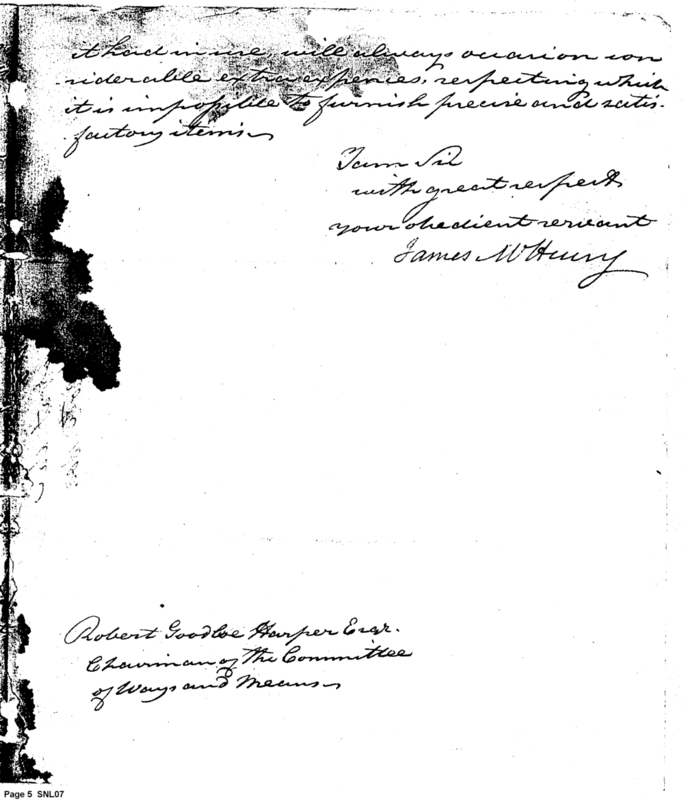 it had in use will always occasion con
siderable extra expenses, respecting which
it is impossible to furnish precise and satis-
factory items
I am Sir
with great respect
your obedient servant
James McHenry
Robert Goodloe Harper Esqr.
Chairman of the Committee
of Ways and Means
Page 5 SNL07